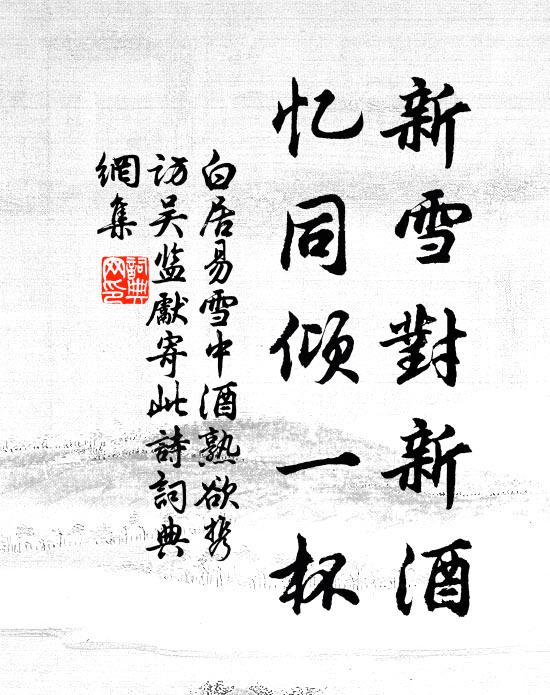 新雪對新酒
忆同倾一杯
白居易雪中酒熟欲携
访吴监獻寄此詩詞典
網集
詞典
网印